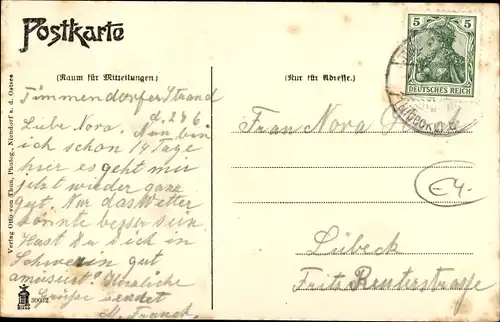 Postkarte
(Raum für Mitteilungen.)
(Nur für Adresse.)
5 5
DEUTSCHES REICH
Timmendorfer Strand
d. 24 6.
Liebe Nora. Nun bin
ich schon 14 Tage
hier es geht mir
jetzt wieder ganz
gut. Nur das Wetter
könnte besser sein.
Hast Du Dich in
Schwerin gut
amüsiert? Herzliche
Grüße sendet
M. Franck.
Frau Nora
Lübeck
Fritz Reuterstraße
E4.-
Verlag Otto von Thun, Photog., Niendorf a. d. Ostsee